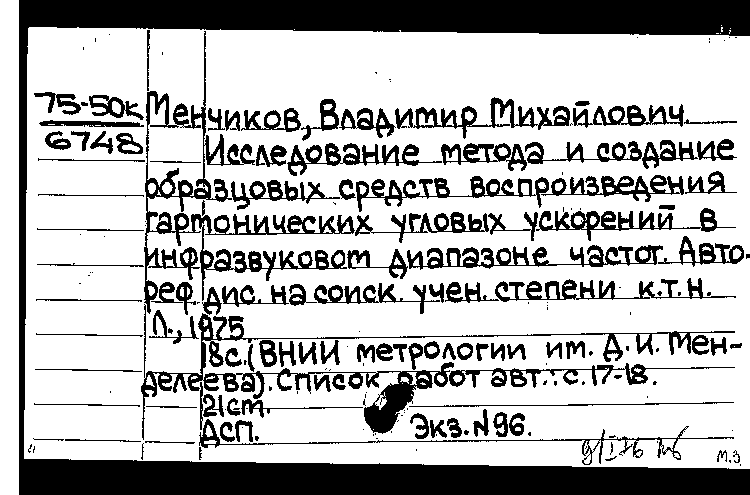 75-50к Менчиков, Владимир Михайлович.
6748 Исследование метода и создание
образцовых средств воспроизведения
гармонических угловых ускорений в
инфразвуковом диапазоне частот. Авто-
реф. дис. на соиск. учен. степени к.т.н.
Л., 1975.
18с. (ВНИИ метрологии им. Д. И. Мен-
делеева). Список работ авт.: с. 17-18.
21см.
ДСП. Экз. N96.
м.э